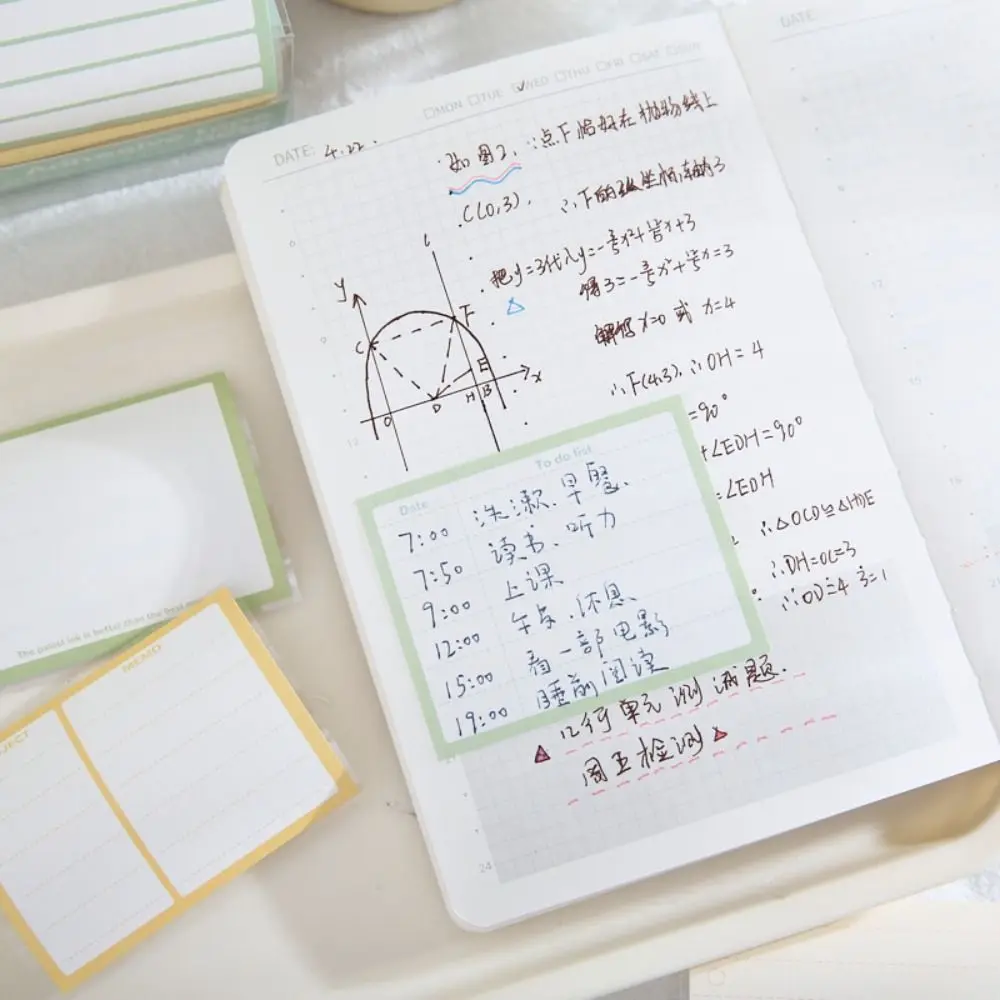 DATE:
DATE: 4.22.
□MON □TUE ☑WED □THU □FRI □SAT □SUN
如图2, ∵点F恰好在抛物线上
C(0,3),
∴F的纵坐标为3
把y=3代入y=-
x²+
x+3
得3=-
x²+
x=3
解得x=0或x=4
∴F(4,3), ∴OH=4
=90°
+∠EDH=90°
=∠EDH
∴△OCD≌△HDE
∴DH=OC=3
∴OD=4-3=1
l
y
C
F
E
x
O
D
H
B
12
24
Date
To do list
7:00 洗漱、早餐、
7:50 读书、听力
9:00 上课
12:00 午后、休息
15:00 看一部电影
19:00 睡前阅读
单元测试题.
周五检测
The palest ink is better than the best
MEMO
JECT